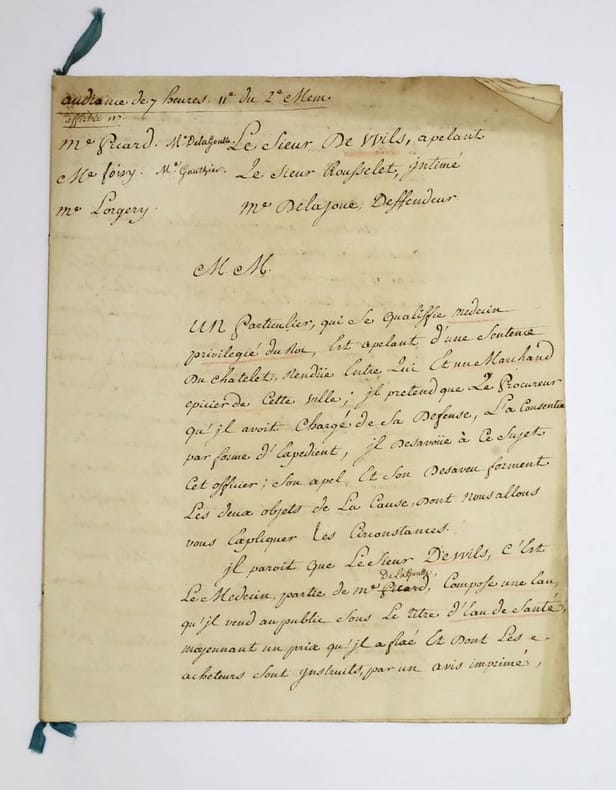 audiance de 7 heures. 11e du 2e Mem.
affichée 11e
Me Picard. Me Delagoutte. Le Sieur De Wils, apelant
Me foisy. Me Gauthier. Le Sieur Rousselet, intime
me Lorgery. Me Delajoue, Deffendeur
M. M.
UN Particulier, qui se qualiffie medecin
privilegié du Roi, Est apelant d'une Sentence
Du Chatelet, Rendüe Entre Lui Et une Marchand
epicier de Cette ville; jl pretend que Le Procureur
qu'jl avoit Chargé de Sa Defense, L'a Consentie
par forme d'Expedient, jl Desavoüe à Ce Sujet
Cet officier; Son apel Et Son Desaveu forment
Les deux objets de La Cause, Dont nous allons
vous Expliquer Les Circonstances.
jl paroit que Le Sieur De Wils, C'Est
Delagoutte
Le Medecin, partie de me Picard, Compose une Eau,
qu'jl vend au public Sous Le titre d'Eau de Santé,
moyennant un prix qu'jl a fixé Et Dont Les
acheteurs Sont ynstruits, par un avis imprimé,